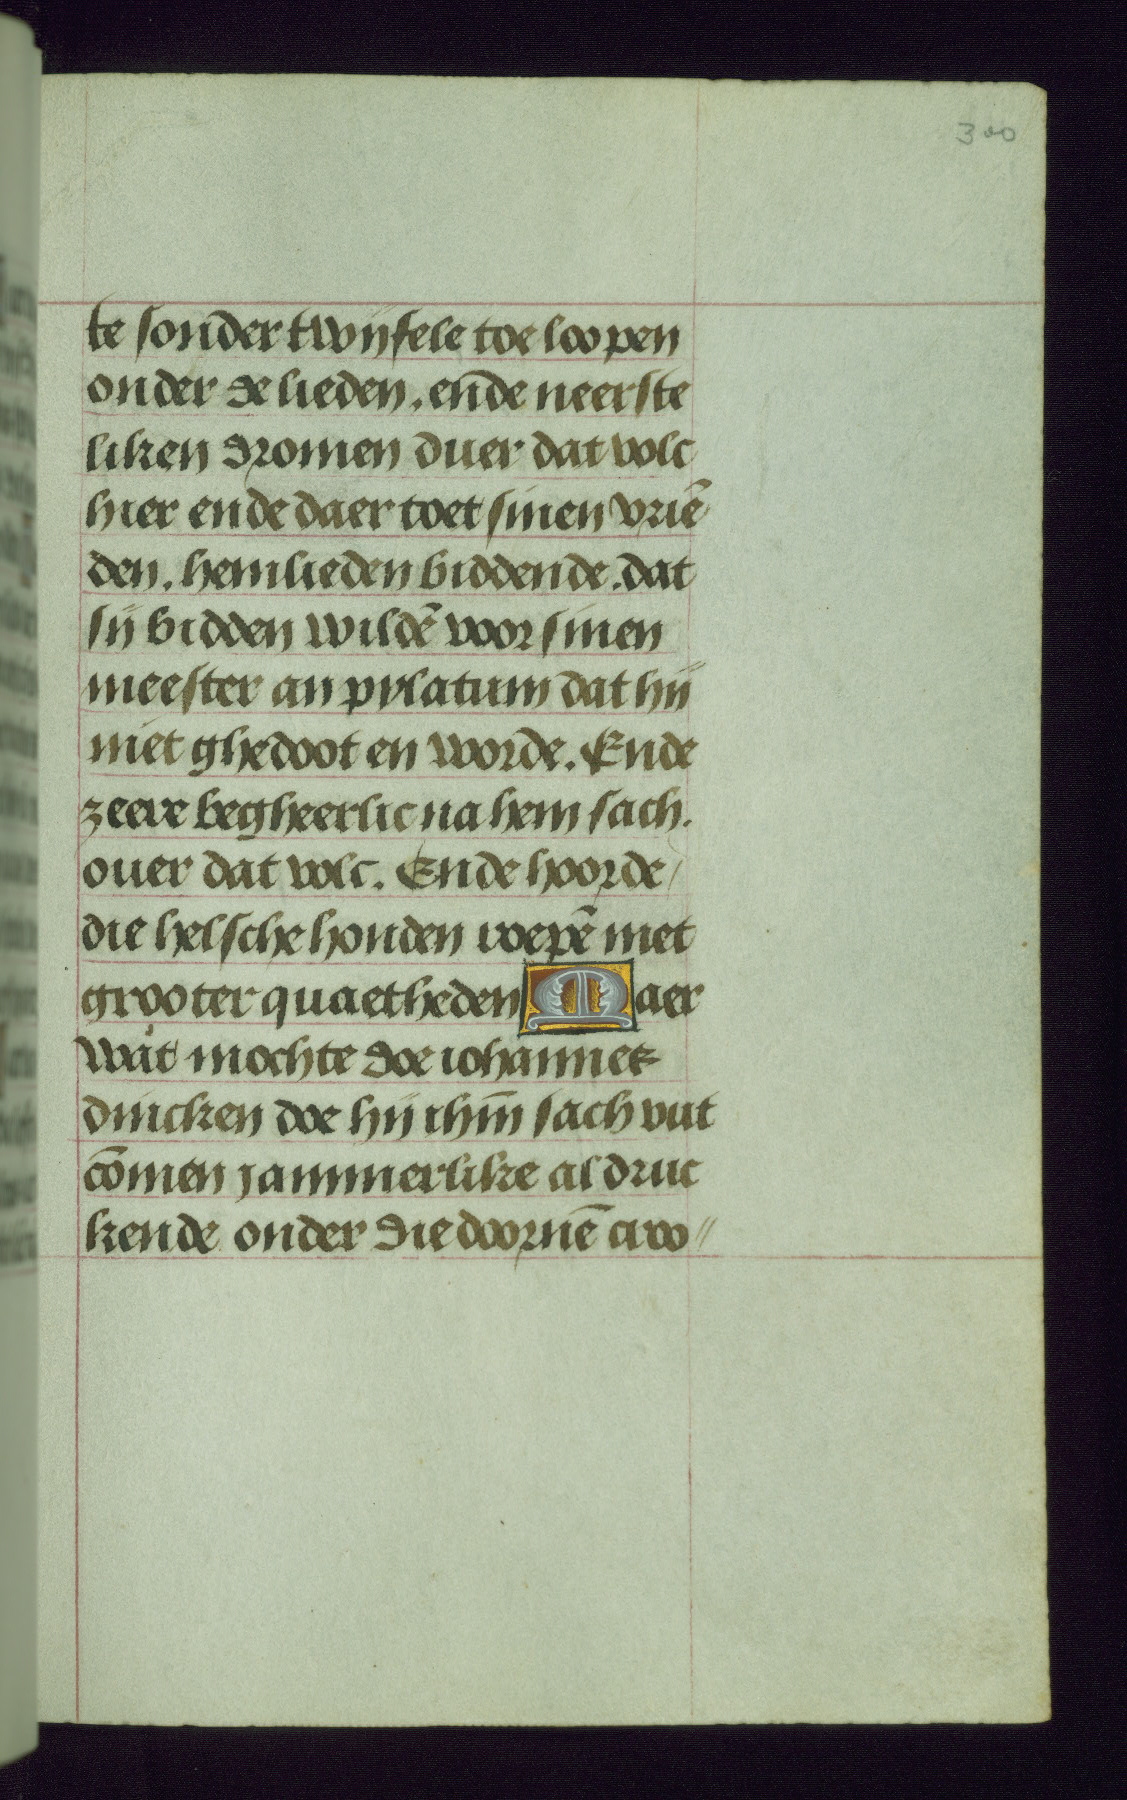 300
te sonder twijfele toe loopen
onder de lieden. ende neerste
liken dromen duer dat volc
hier ende daer toet sinen vriē
den. hemlieden biddende. dat
sij bidden wildē voor sinen
meester an pylatum dat hij
niet ghedoot en worde. Ende
zeere begheerlic na hem sach.
ouer dat volc. Ende hoorde
die helsche honden roepē met
grooter quaetheden Maer
wat mochte doe iohannes
duncken doe hij ihm̄ sach vut
cōmen jammerlike al druc
kende onder die doornē croo〃